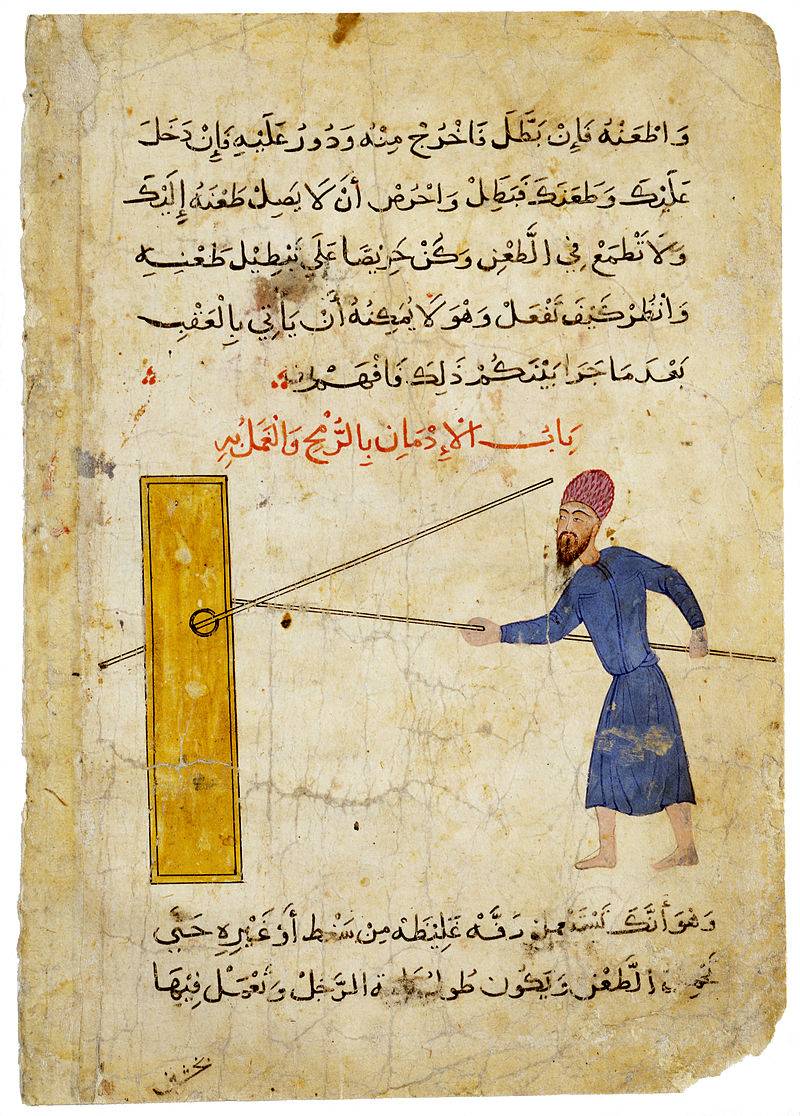 وَاطْعَنْهُ فَإِنْ بَطَّلَ فَاخْرُجْ مِنْهُ وَدُورْ عَلَيْهِ فَإِنْ دَخَلَ
عَلَيْكَ وَطَعَنَكَ فَبَطِلْ وَاحْرُصْ أَنْ لَا يَصِلْ طَعْنَهُ إِلَيْكَ
وَلَا تَطْمَعْ فِي الطَّعْنِ وَكُنْ حَرِيْصًا عَلَي تَبْطِيْل طَعْنِهِ
وَانْظُرْ كَيْفَ تَفْعَلْ وَهُوَ لَا يُمْكِنُهُ أَنْ يَأْتِي بِالْعَقْبِ
بَعْدَ مَا جَرَا بَيْنَكُمْ ذَلِكَ فَافْهَمْ
بَابُ الْإِدْمَانِ بِالرُّمْحِ وَالْعَمَلُ بِهِ
وَهُوَ أَنَّكَ دَفَّهْ غَلِيْظَهْ مِنْ سَنْط أَوْ غَيْرِهِ حَتَّى
الطَّعْنِ وَيَكُون طُول الرَّجُلْ وَتُعْمَلْ فِيْهَا